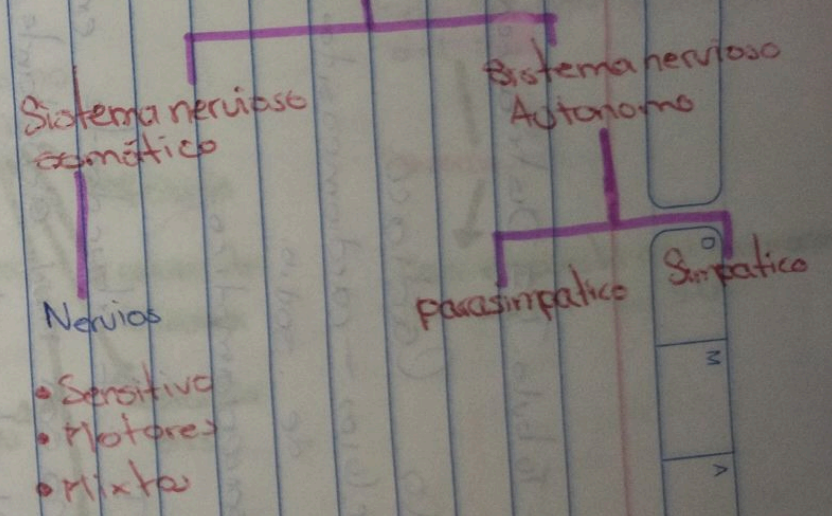 Sistema nervioso
somático
Nervios
• Sensitivo
• Motores
• Mixta
Sistema nervioso
Autonomo
parasimpatico
Simpatico
D
M
A